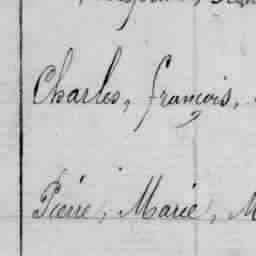 Charles, françois,
Pierre, Marie, M